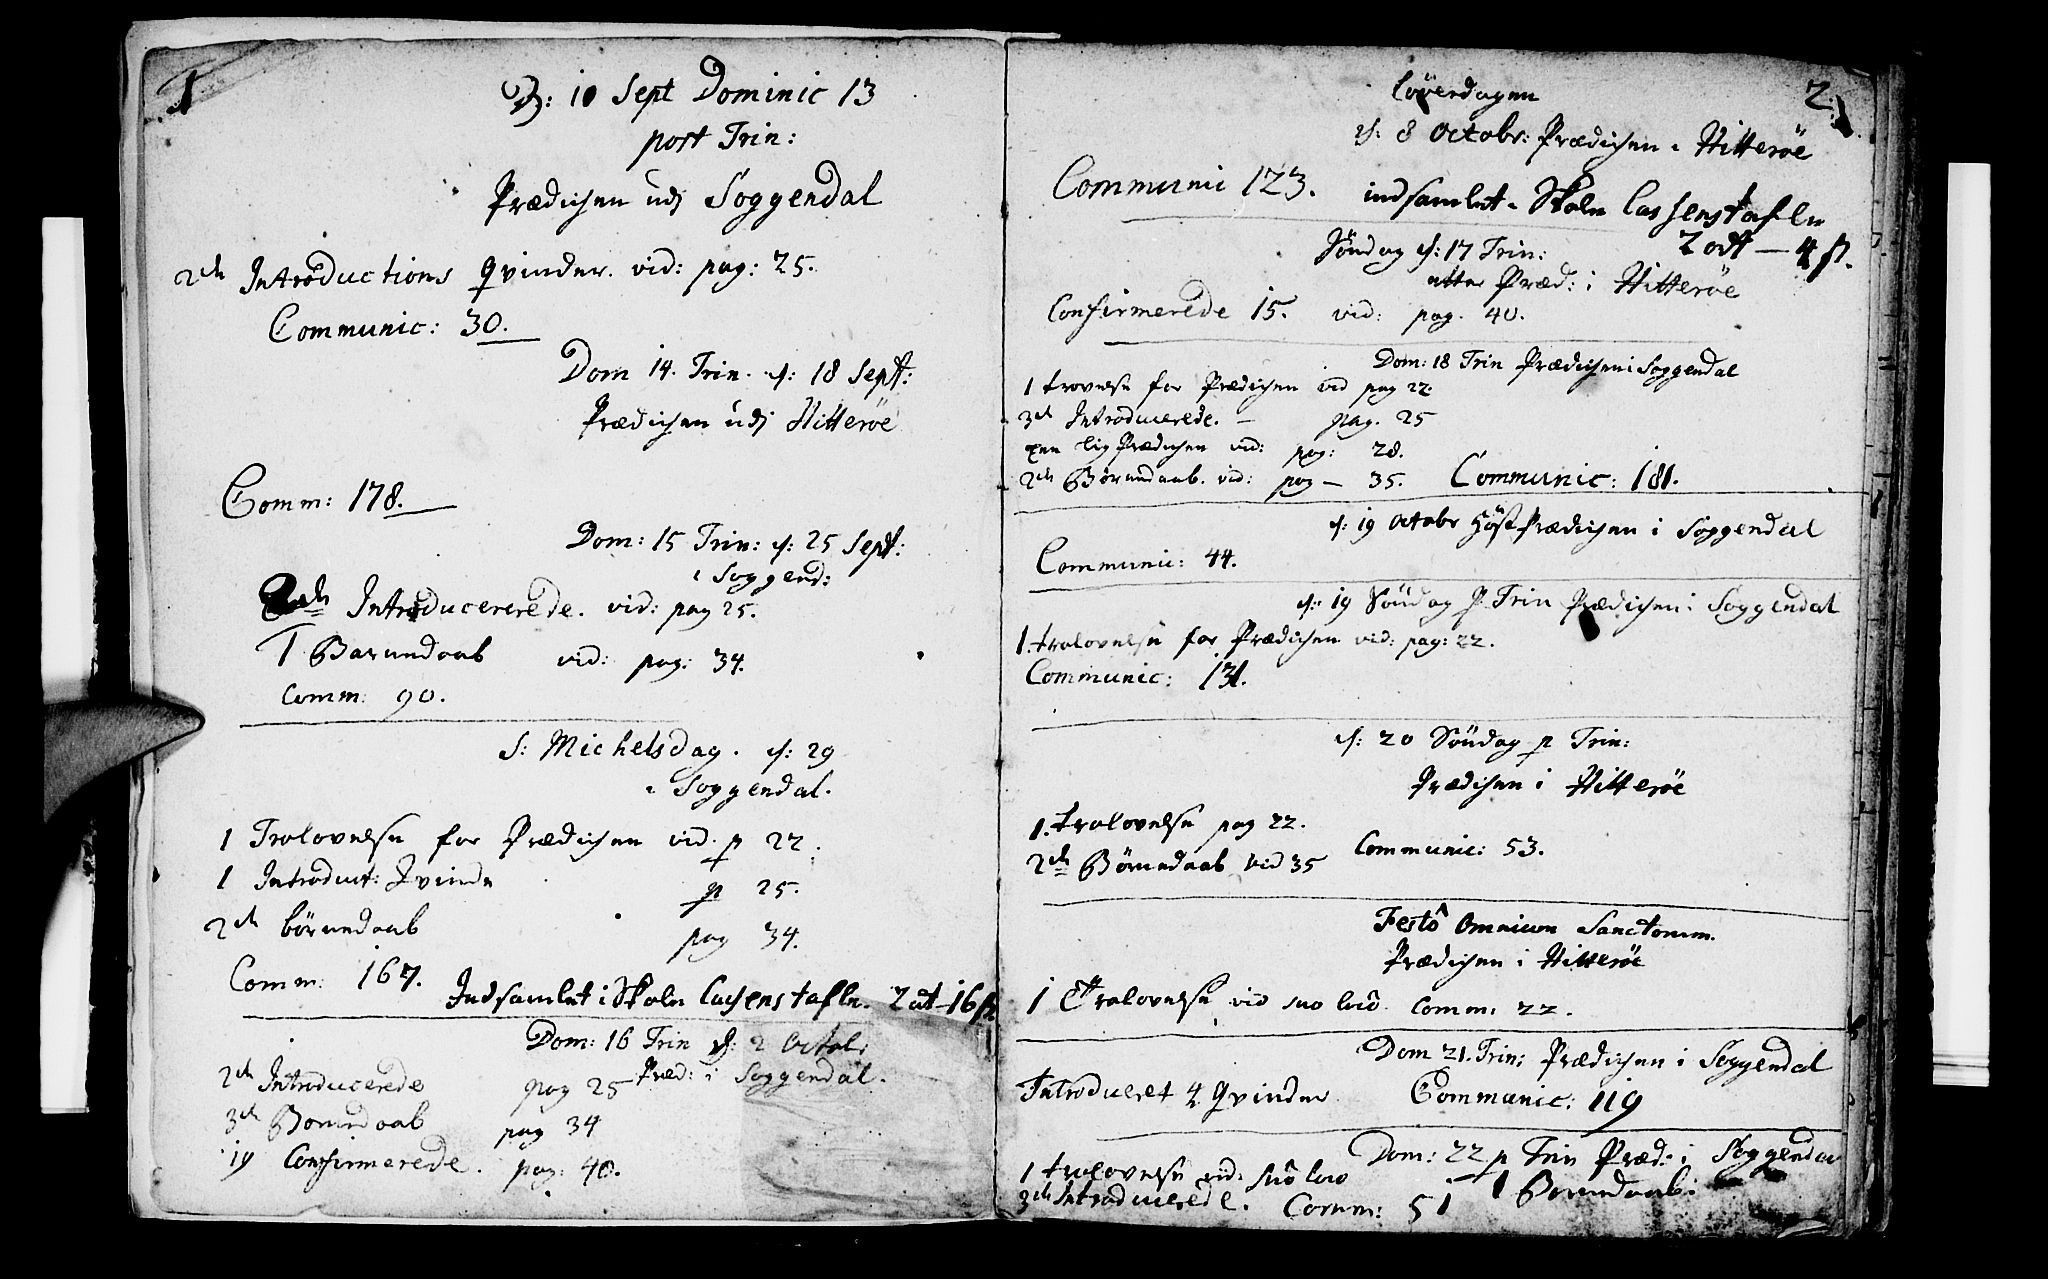 1
D: 10 Sept Dominic 13
post Trin:
Prædichen udj Soggendal
2de Introductions Qvinder. vid: pag: 25.
Communic: 30.
Dom 14. Trin. d: 18 Sept:
Prædichen udj Hitterøe
Comm: 178.
Dom: 15 Trin: d: 25 Sept:
i Soggend:
2de Introducererede. vid: pag 25.
1 Barnedaab vid: pag: 34.
Comm: 90.
S: Michelsdag. d: 29
i Soggendal.
1 Trolovelse for Prædichen vid. p 22.
1 Introduct: Qvinde p 25.
2de börnedaab pag 34.
Comm: 167. Indsamlet i Skole Cassens tafle. 2 ort - 16 s
Dom: 16 Trin d: 2 Octob:
Præd: i Soggendal.
2de Introducerede pag 25
3de Bornedaab pag 34
19 Confirmerede. pag: 40.
2.
Löverdagen
d: 8 Octobr: Prædichen i Hitterøe
Communic 123. indsamlet i Skole Cassens tafle
2 ort - 4 s.
Söndag d: 17 Trin:
atter Præd: i Hitteröe
Confirmerede 15. vid: pag. 40.
Dom: 18 Trin Prædichen i Soggendal
1 trovelse for Prædichen vid pag 22
3de Introducerede. - pag. 25
een lig Prædichen vid: pag: 28.
2de Börnedaab. vid: pag - 35. Communic: 181.
d: 19 Octobr Höst Prædichen i Soggendal
Communic: 44.
d: 19 Söndag p Trin Prædichen i Soggendal
1. trolovelse for Prædichen vid: pag: 22.
Communic: 131.
d: 20 Söndag p Trin:
Prædichen i Hitteröe
1. trolovelse pag 22.
2de Börnedaab vid 35 Communic: 53.
Festô Omnium Sanctorum.
Prædichen i Hitteröe
1 Trolovelse vid suo loco. Comm: 22.
Dom 21. Trin: Prædichen i Soggendal
Introduceret 4 Qvinder Communic: 119
Dom: 22 p Trin Præd: i Soggendal
1 trolovelse vid: suo loco 1 Barnedaab:
3de Introducerede. Comm: 51